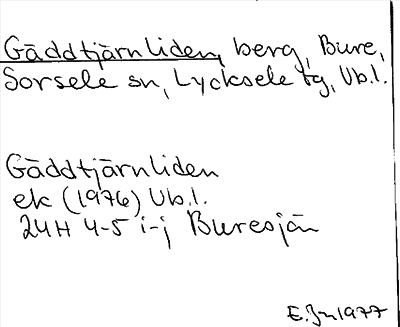 Gäddtjärnliden, berg, Bure,
Sorsele sn, Lycksele tg, Vb.l.
Gäddtjärnliden
ek (1976) Vb.l.
24H 4-5 i-j Buresjön
E.Jn 1977